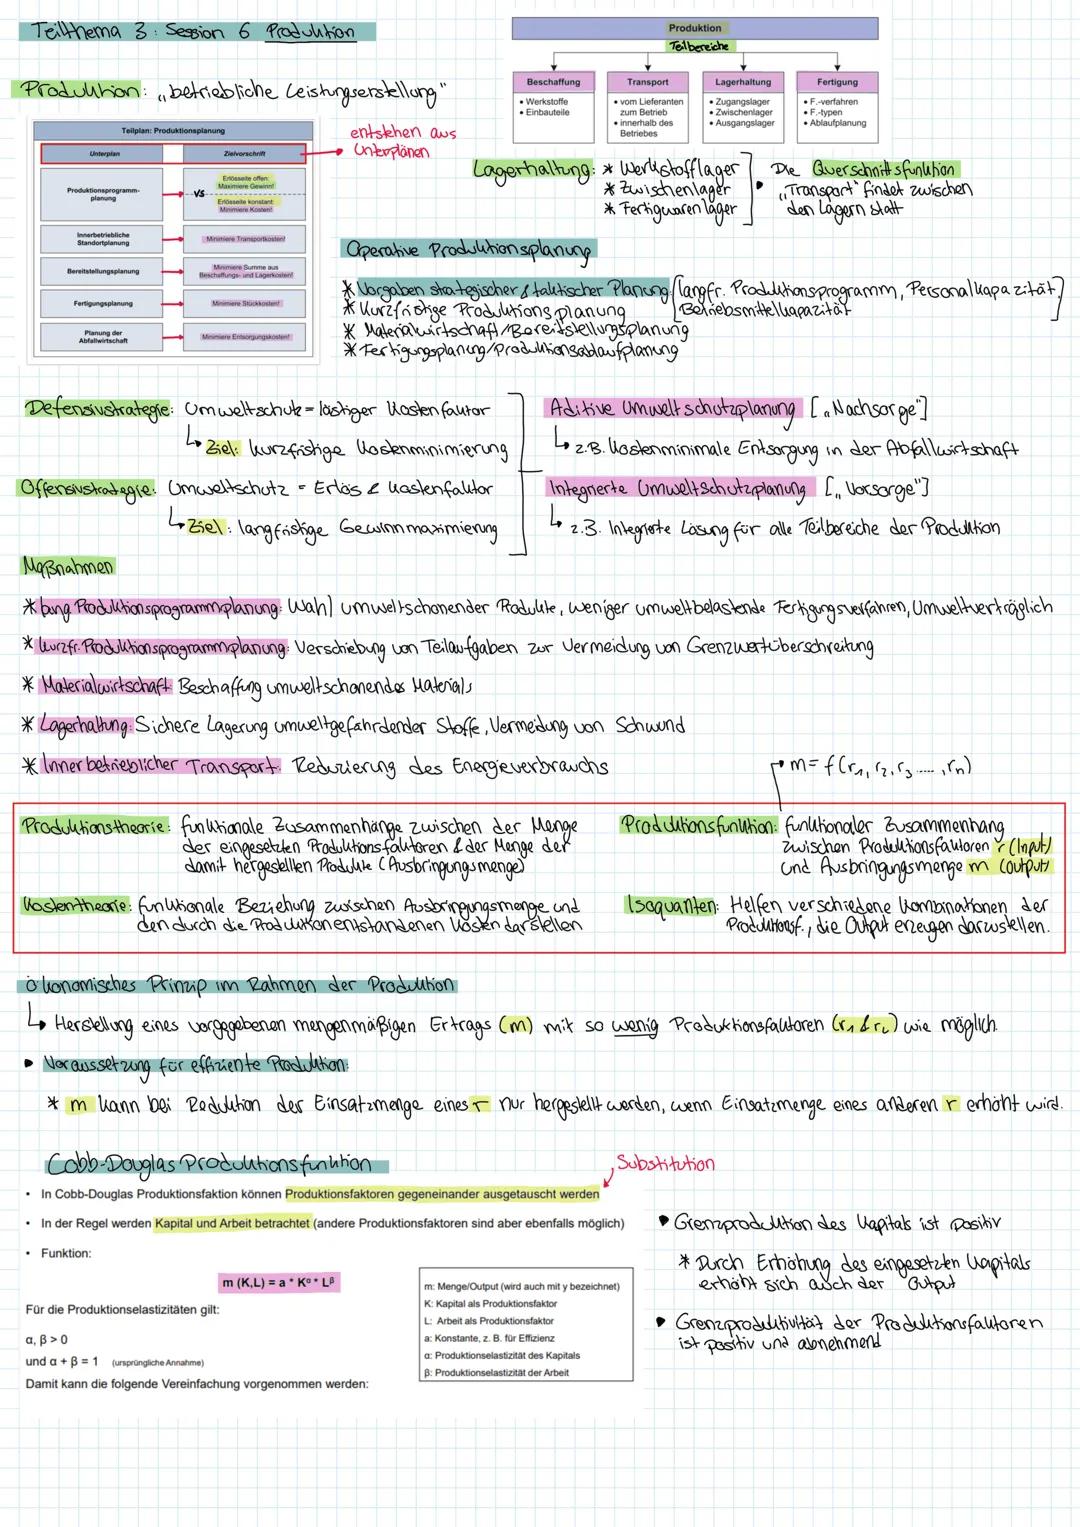 Teilthema 3: Session 6 Produktion
Produktion
Teilbereiche
Beschaffung
• Werkstoffe
• Einbauteile
Transport
• vom Lieferanten
zum Betrieb
• innerhalb des
Betriebes
Lagerhaltung
• Zugangslager
• Zwischenlager
• Ausgangslager
Fertigung
• F.-verfahren
• F.-typen
• Ablaufplanung
Produktion: „betriebliche Leistungserstellung"
Teilplan: Produktionsplanung
Unterplan
Zielvorschrift
entstehen aus
Unterplänen
Produktionsprogramm-
planung
vs
Erlösseite offen:
Maximiere Gewinn!
Erlösseite konstant:
Minimiere Kosten!
Innerbetriebliche
Standortplanung
Minimiere Transportkosten!
Bereitstellungsplanung
Minimiere Summe aus
Beschaffungs- und Lagerkosten!
Fertigungsplanung
Minimiere Stückkosten!
Planung der
Abfallwirtschaft
Minimiere Entsorgungskosten!
Lagerhaltung: * Werkstofflager
* Zwischenlager
* Fertigwarenlager
• Die Querschnittsfunktion
„Transport" findet zwischen
den Lägern statt
Operative Produktionsplanung
* Vorgaben strategischer & taktischer Planung [langfr. Produktionsprogramm, Personalkapazität,
Betriebsmittelkapazität]
* Kurzfristige Produktionsplanung
* Materialwirtschaft/Bereitstellungsplanung
* Fertigungsplanung/Produktionsablaufplanung
Defensivstrategie: Umweltschutz = lästiger Kostenfaktor
↳ Ziel: kurzfristige Kostenminimierung
Offensivstrategie: Umweltschutz = Erlös & Kostenfaktor
↳ Ziel: langfristige Gewinnmaximierung
Aditive Umweltschutzplanung [„Nachsorge"]
↳ z.B. Kostenminimale Entsorgung in der Abfallwirtschaft
Integrierte Umweltschutzplanung [„Vorsorge"]
↳ z.B. Integrierte Lösung für alle Teilbereiche der Produktion
Maßnahmen
* lang. Produktionsprogrammplanung: Wahl umweltschonender Produkte, weniger umweltbelastende Fertigungsverfahren, Umweltverträglich
* kurzfr. Produktionsprogrammplanung: Verschiebung von Teilaufgaben zur Vermeidung von Grenzwertüberschreitung
* Materialwirtschaft: Beschaffung umweltschonendes Materials
* Lagerhaltung: Sichere Lagerung umweltgefährdender Stoffe, Vermeidung von Schwund
* Innerbetrieblicher Transport: Reduzierung des Energieverbrauchs
m = f(r₁, r₂, r₃ ....., rn)
Produktionstheorie: funktionale Zusammenhänge zwischen der Menge
der eingesetzten Produktionsfaktoren & der Menge der
damit hergestellten Produkte (Ausbringungsmenge)
Kostentheorie: funktionale Beziehung zwischen Ausbringungsmenge und
den durch die Produktion entstandenen Kosten darstellen
Produktionsfunktion: funktionaler Zusammenhang
zwischen Produktionsfaktoren r (Input)
und Ausbringungsmenge m (Output)
Isoquanten: Helfen verschiedene Kombinationen der
Produktionsf., die Output erzeugen darzustellen.
ökonomisches Prinzip im Rahmen der Produktion
↳ Herstellung eines vorgegebenen mengenmäßigen Ertrags (m) mit so wenig Produktionsfaktoren (r₁ & r₂) wie möglich.
• Voraussetzung für effiziente Produktion:
* m kann bei Reduktion der Einsatzmenge eines r nur hergestellt werden, wenn Einsatzmenge eines anderen r erhöht wird.
Cobb-Douglas Produktionsfunktion
Substitution
• In Cobb-Douglas Produktionsfaktion können Produktionsfaktoren gegeneinander ausgetauscht werden
• In der Regel werden Kapital und Arbeit betrachtet (andere Produktionsfaktoren sind aber ebenfalls möglich)
• Funktion:
m (K,L) = a * Kᵅ * Lᵝ
Für die Produktionselastizitäten gilt:
α, β > 0
und α + β = 1 (ursprüngliche Annahme)
Damit kann die folgende Vereinfachung vorgenommen werden:
m: Menge/Output (wird auch mit y bezeichnet)
K: Kapital als Produktionsfaktor
L: Arbeit als Produktionsfaktor
a: Konstante, z. B. für Effizienz
α: Produktionselastizität des Kapitals
β: Produktionselastizität der Arbeit
• Grenzproduktion des Kapitals ist positiv
* Durch Erhöhung des eingesetzten Kapitals
erhöht sich auch der Output
• Grenzproduktivität der Produktionsfaktoren
ist positiv und abnehmend